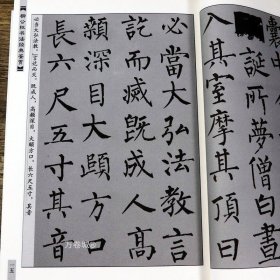 誕所夢僧白晝
入其室摩其頂曰
必當大弘法教言
訖而滅既成人高
顙深目大頤方口
長六尺五寸其音
必当大弘法教。言讫而灭。既成人，高颡深目，大颐方口，长六尺五寸，其音
柳公权书法经典鉴赏